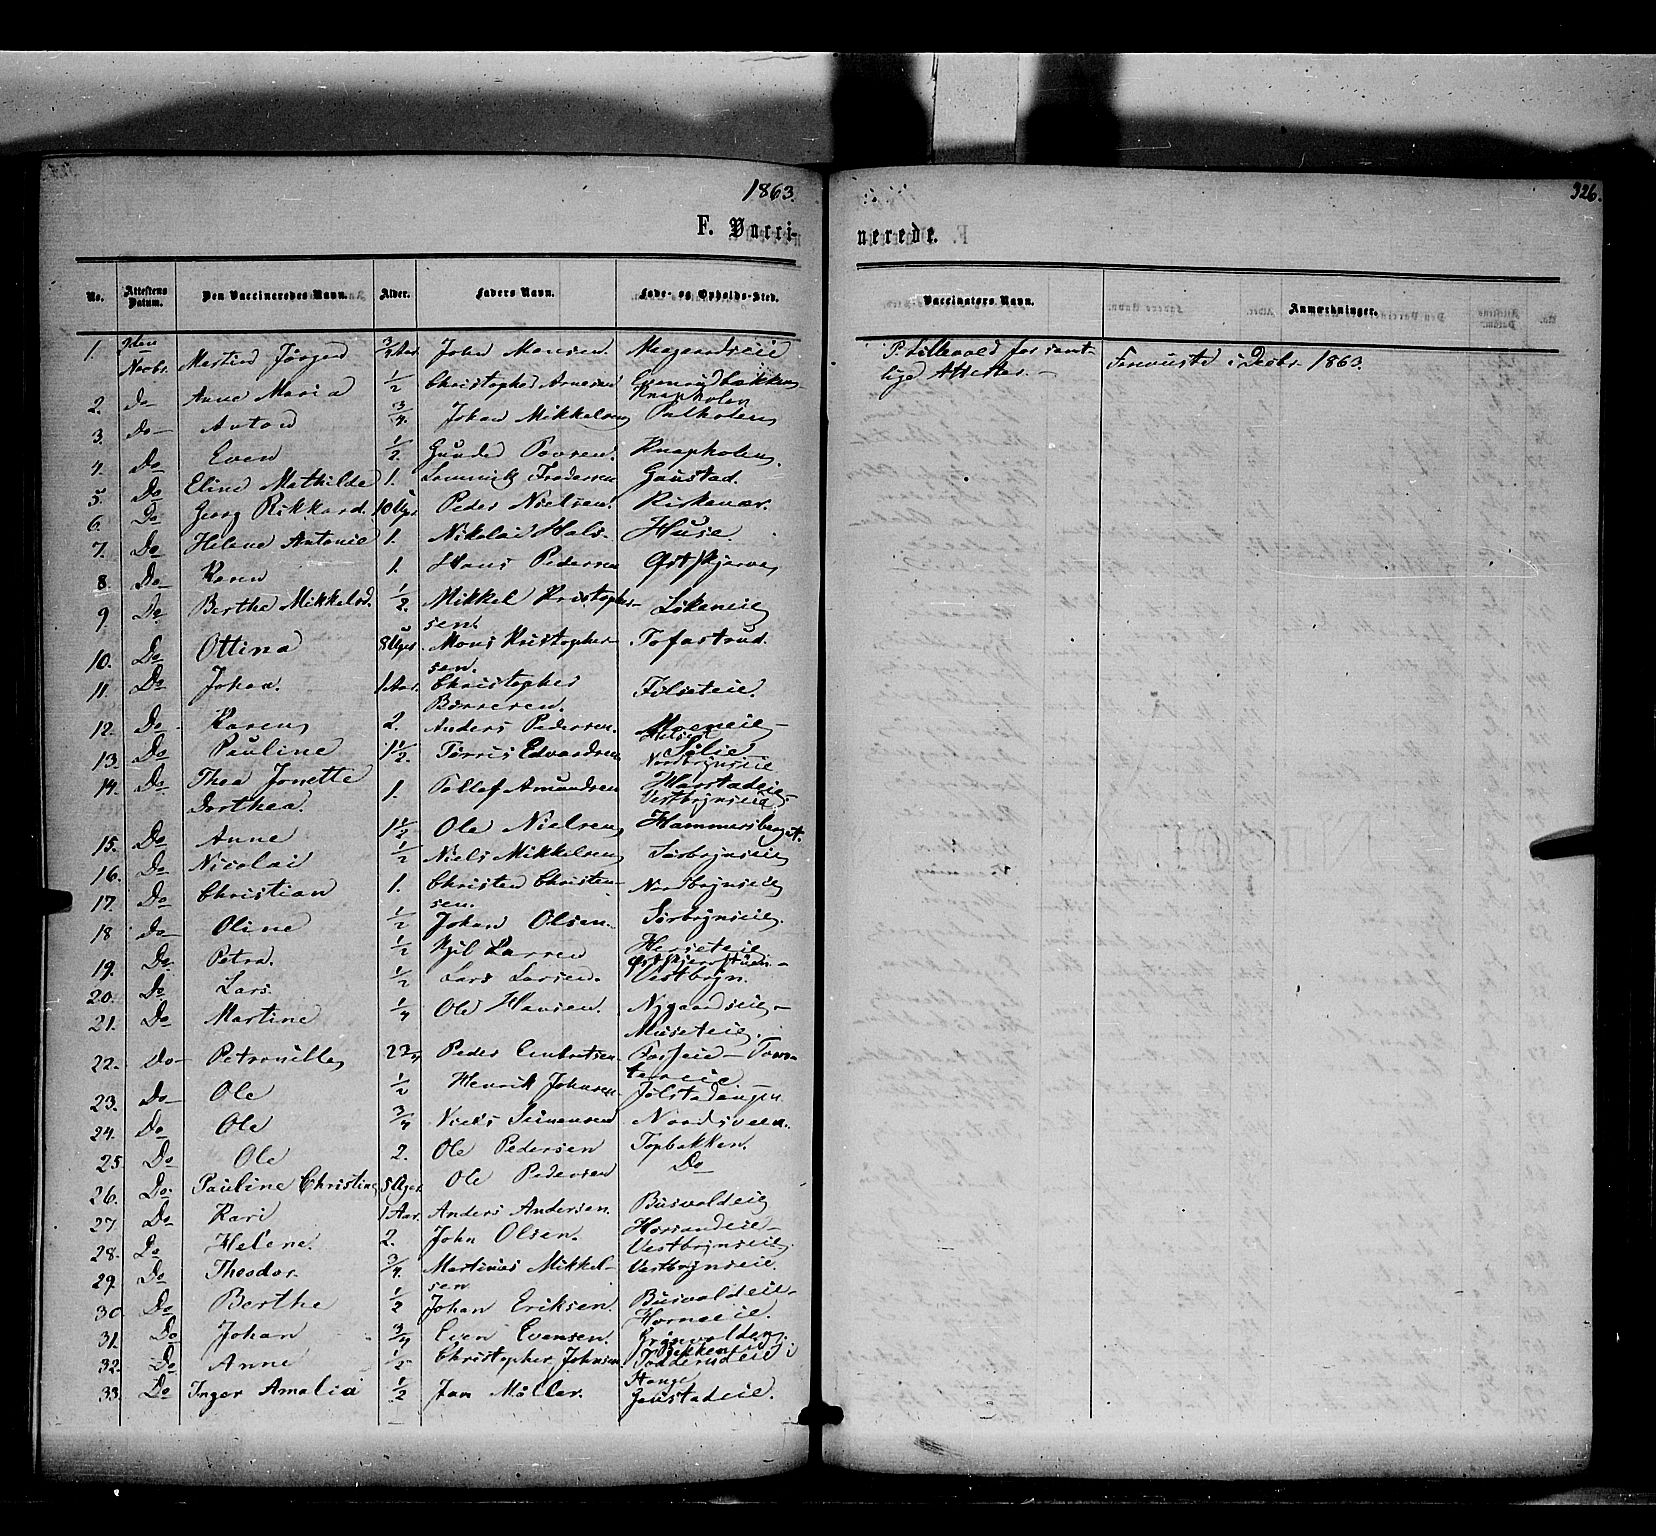 1863.
326.
F. Vacci-
nerede.
No. Attestens Datum. Den Vaccineredes Navn. Alder. Faders Navn. Føde- og Opholds-Sted.
Vaccinators Navn. Anmærkninger.
1. Novbr. Martin Jørgen 3/4 Aar. John Monsen.
P. Lillevold for samt-
lige Attester. — i Decbr. 1863.
2. Do Anne Maria 1/2 Christopher Arnesen
Knapholen
3. Do Anton 3/4. Johan Mikkelsen
4. Do Even 1/2. Gunder Knapholen.
5. Do Eline Mathilde 1. Gaustad.
6. Do Georg Rikkard. 10 Uger Peder Nielsen. Kirkenær.
7. Do Helene Antonie 1. Nikolai Hals. Huse.
8. Do Karen 1. Hans Pedersen
9. Do Berthe Mikkelsd. 1/2. Mikkel Kristopher-
sen.
10. Do Ottina 8 Uger Mons Kristopher- Tofastrud.
sen.
11. Do Johan. 1 Aar. Christopher
12. Do Karen 2. Anders Pedersen. Moeneie —
13. Do Pauline 1 1/2. Tørris Edvardsen Sølie
Nordbynseie
14. Do Thea Jonette 1. Tollef Amundsen Harstadeie-
Dorthea. Vestbynseie
15. Do Anne 1 1/2 Ole Nielsen Hammersberget.
16. Do Nicolai 1/2 Niels Mikkelsen Sørbynseie
17. Do Christian 1. Christen Christen- Nordbynseie
sen.
18 Do Oline 1/2 Johan Olsen. Sørbynseie.
19. Do Petra. 1/2 Kjil Larsen
20. Do Lars. 1/2 Lars Larsen. Vestbyn.
21. Do Martine 1/4 Ole Hansen. Nygaardseie —
22. Do Petronille 2 3/4 Peder Embretsen
23. Do Ole 1/2 Henrik Johnsen
24. Do Ole 3/4 Niels Simensen Nordsveen.
25. Do Ole 2. Ole Pedersen Topbakken.
26. Do Pauline Christine 5 Uger. Ole Pedersen Do
27 Do Kari 1 Aar. Anders Andersen. Busvoldeie
28. Do Helene. 2. John Olsen.
Vestbynseie.
29. Do Theodor. 3/4. Martinus Mikkel- Vestbynseie.
sen
30. Do Berthe 1/2 Johan Eriksen. Busvoldeie-
Horneeie.
31. Do Johan 3/4 Even Evensen.
32. Do Anne 1/2 Christopher Johnsen
Stange
33. Do Inger Amalia 1/2 Jan Møller. Gaustadeie.